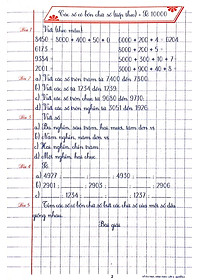 Các số có bốn chữ số (tiếp theo) - Số 10000
Bài 1 Viết (theo mẫu)
5450 = 5000 + 400 + 50 + 0 6000 + 200 + 4 = 6204
6173 = 8000 + 300 =
9384 = 5000 + 300 + 10 + 7 =
2001 = 9000 + 900 + 40 + 8 =
Bài 2 Viết
a) Các số tròn trăm từ 7400 đến 7800.
b) Các số từ 1234 đến 1239.
c) Các số tròn nghìn từ 3000 đến 7000.
d) Các số tròn nghìn từ 3051 đến 1926.
Bài 3 Viết số
a) Ba nghìn, sáu trăm, hai mươi tám đơn vị
b) Năm nghìn, năm đơn vị
c) Hai nghìn, chín trăm
d) Một nghìn, hai chục
Bài 4 Số
a) 4927 ; ; ; 4930 ; ;
b) 2901 ; ; 2903 ; ; ; 2906
c) ; ; 1234 ; ; 1237 ;
Bài 5 Tìm các số có bốn chữ số biết các chữ số của mỗi số đều
giống nhau.
Bài giải